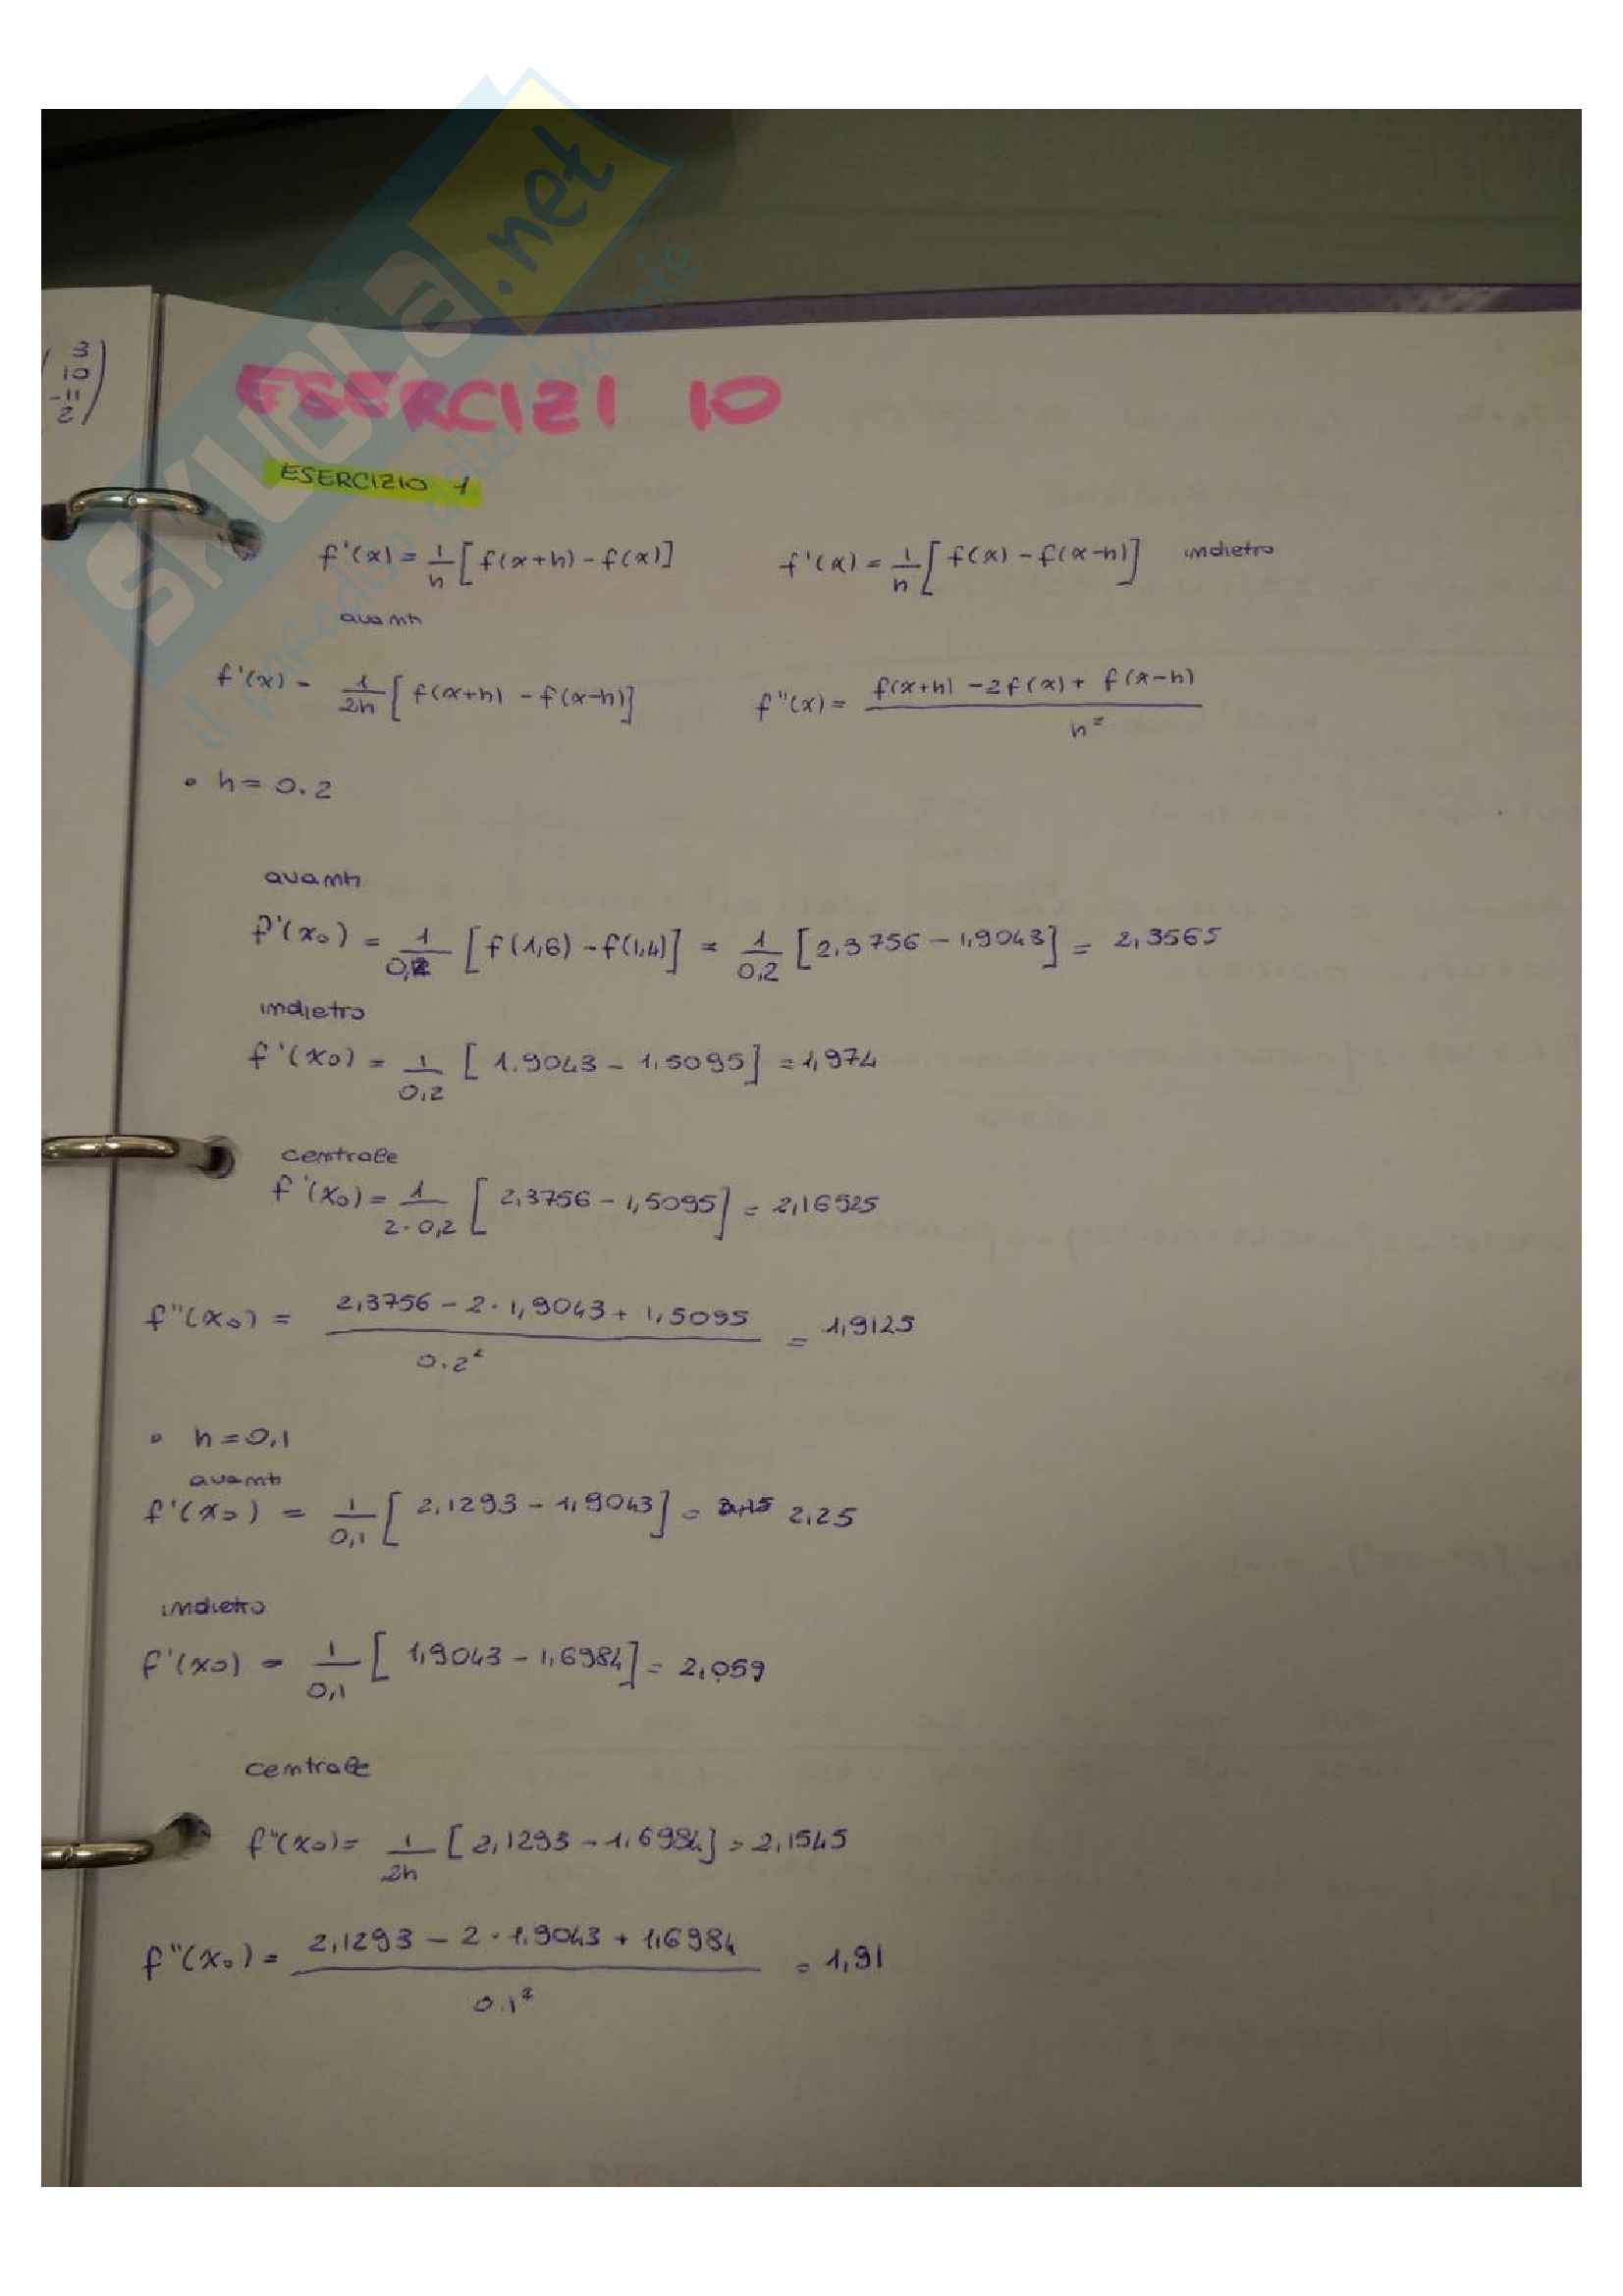 SKUOLA.net
3
10
-11
2
ESERCIZI 10
ESERCIZIO 1
f'(x) = 1/h [f(x+h) - f(x)]    f'(x) = 1/h [f(x) - f(x-h)] indietro
avanti
f'(x) = 1/2h [f(x+h) - f(x-h)]    f''(x) = f(x+h) - 2f(x) + f(x-h) / h²
• h = 0.2
avanti
f'(x₀) = 1/0,2 [f(1,6) - f(1,4)] = 1/0,2 [2,3756 - 1,9043] = 2,3565
indietro
f'(x₀) = 1/0,2 [1.9043 - 1,5095] = 1,974
centrale
f'(x₀) = 1/2·0,2 [2,3756 - 1,5095] = 2,16525
f''(x₀) = 2,3756 - 2·1,9043 + 1,5095 / 0.2² = 1,9125
• h = 0,1
avanti
f'(x₀) = 1/0,1 [2,1293 - 1,9043] = 2,25
indietro
f'(x₀) = 1/0,1 [1,9043 - 1,6984] = 2,059
centrale
f''(x₀) = 1/2h [2,1293 - 1,6984] = 2,1545
f''(x₀) = 2,1293 - 2·1,9043 + 1,6984 / 0.1² = 1,91